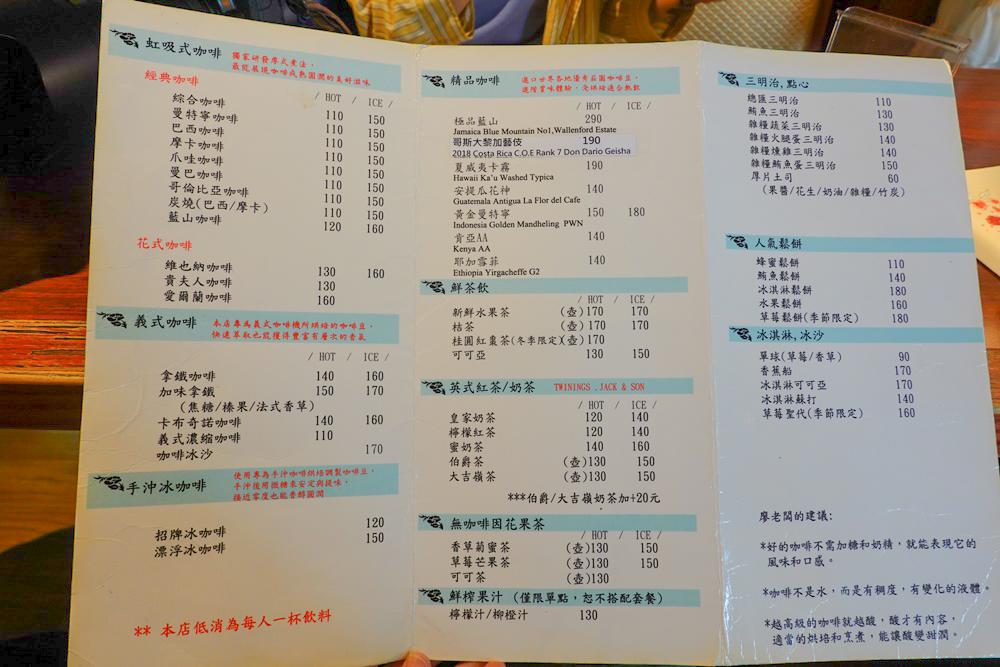 虹吸式咖啡
獨家研發厚式煮法，
最能展現咖啡成熟圓潤的美好滋味
經典咖啡
/ HOT / ICE /
綜合咖啡 110 150
曼特寧咖啡 110 150
巴西咖啡 110 150
摩卡咖啡 110 150
爪哇咖啡 110 150
曼巴咖啡 110 150
哥倫比亞咖啡 110 150
炭燒(巴西/摩卡) 110 150
藍山咖啡 120 160
花式咖啡
維也納咖啡 130 160
貴夫人咖啡 130
愛爾蘭咖啡 160
義式咖啡
本店專為義式咖啡機所烘焙的咖啡豆，
快速萃取也能獲得豐富有層次的香氣
/ HOT / ICE /
拿鐵咖啡 140 160
加味拿鐵 150 170
(焦糖/榛果/法式香草)
卡布奇諾咖啡 140 160
義式濃縮咖啡 110
咖啡冰沙 170
手沖冰咖啡
使用專為手沖咖啡烘焙調製咖啡豆，
手沖後用微糖來安定與提味，
接近零度也能香醇圓潤
招牌冰咖啡 120
漂浮冰咖啡 150
** 本店低消為每人一杯飲料
精品咖啡
進口世界各地優秀莊園咖啡豆，
進階賞味體驗，淺烘焙適合熱飲
/ HOT / ICE /
極品藍山 290
Jamaica Blue Mountain No1,Wallenford Estate
哥斯大黎加藝伎 190
2018 Costa Rica C.O.E Rank 7 Don Dario Geisha
夏威夷卡霧 190
Hawaii Ka'u Washed Typica
安提瓜花神 140
Guatemala Antigua La Flor del Cafe
黃金曼特寧 150 180
Indonesia Golden Mandheling PWN
肯亞AA 140
Kenya AA
耶加雪菲 140
Ethiopia Yirgacheffe G2
鮮茶飲
/ HOT / ICE /
新鮮水果茶 (壺)170 170
桔茶 (壺)170 170
桂圓紅棗茶(冬季限定)(壺)170
可可亞 130 150
英式紅茶/奶茶 TWININGS .JACK & SON
/ HOT / ICE /
皇家奶茶 120 140
檸檬紅茶 120 140
蜜奶茶 140 160
伯爵茶 (壺)130 150
大吉嶺茶 (壺)130 150
***伯爵/大吉嶺奶茶加+20元
無咖啡因花果茶
/ HOT / ICE /
香草菊蜜茶 (壺)130 150
草莓芒果茶 (壺)130 150
可可茶 (壺)130
鮮榨果汁 (僅限單點，恕不搭配套餐)
檸檬汁/柳橙汁 130
三明治,點心
總匯三明治 110
鮪魚三明治 130
雜糧蔬菜三明治 130
雜糧火腿蛋三明治 140
雜糧燻雞三明治 140
雜糧鮪魚蛋三明治 150
厚片土司 60
(果醬/花生/奶油/雜糧/竹炭)
人氣鬆餅
蜂蜜鬆餅 110
鮪魚鬆餅 140
冰淇淋鬆餅 180
水果鬆餅 160
草莓鬆餅(季節限定) 180
冰淇淋,冰沙
單球(草莓/香草) 90
香蕉船 170
冰淇淋可可亞 170
冰淇淋蘇打 140
草莓聖代(季節限定) 160
廖老闆的建議:
*好的咖啡不需加糖和奶精，就能表現它的
風味和口感。
*咖啡不是水，而是有稠度，有變化的液體。
*越高級的咖啡就越酸，酸才有內容，
適當的烘培和烹煮，能讓酸變甜潤。